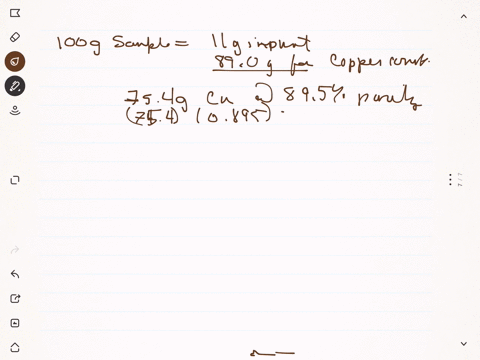 100g Sample = 11g impurit
89.0 g for Copper const.
75.4g Cu @ 89.5% purity
(75.4) (0.895)